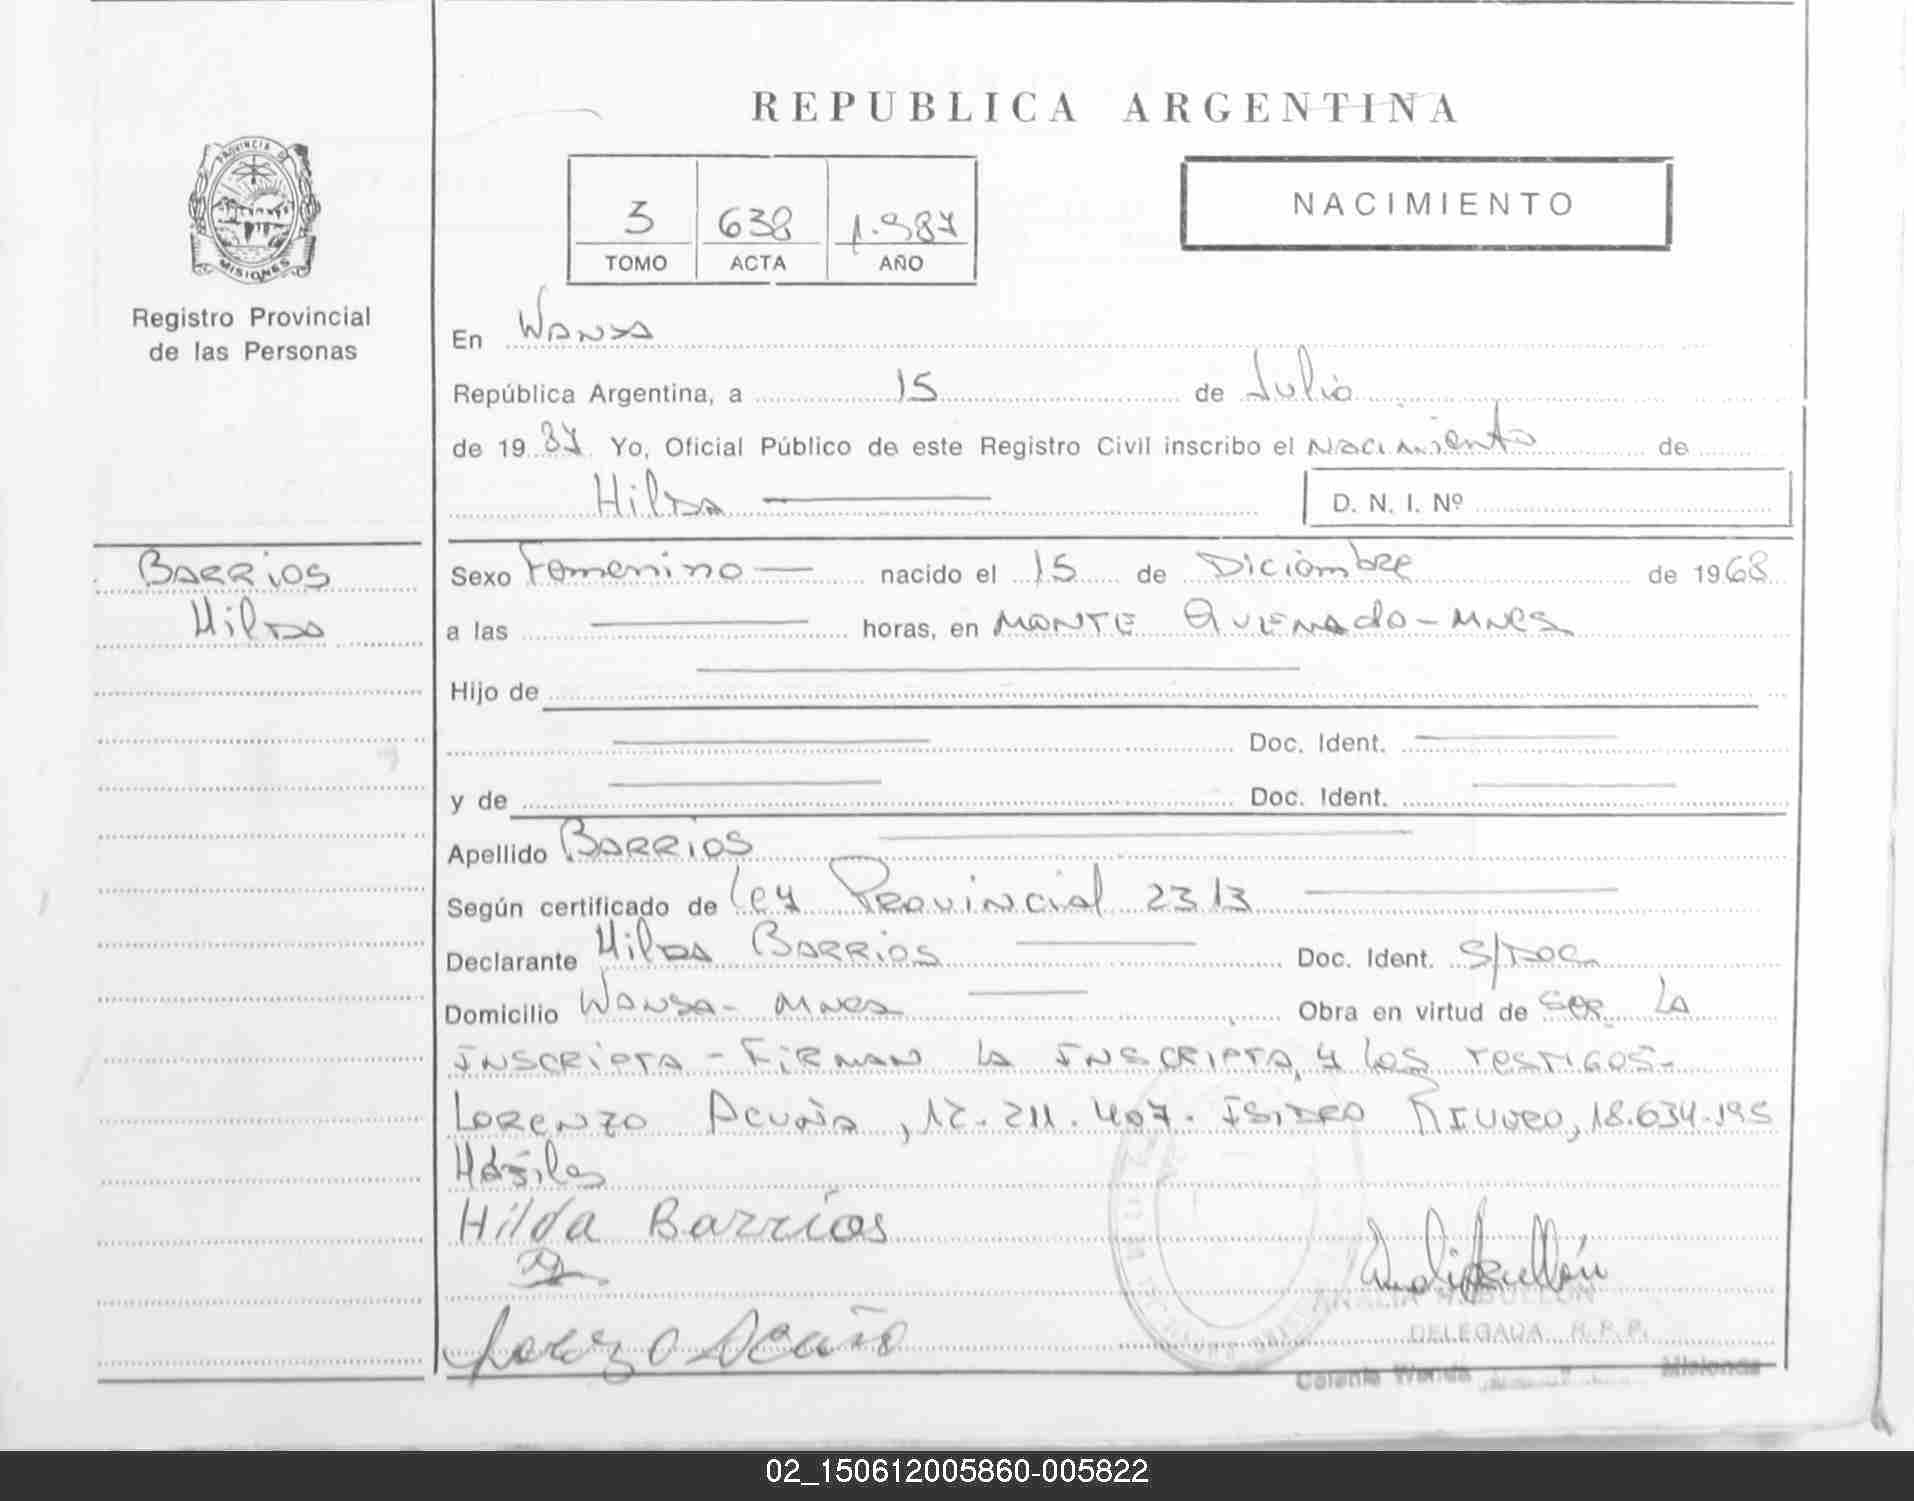 REPUBLICA ARGENTINA
PROVINCIA DE
MISIONES
Registro Provincial
de las Personas
3 638 1.987
TOMO ACTA AÑO
NACIMIENTO
En Wanda
República Argentina, a 15 de Julio
de 1987 Yo, Oficial Público de este Registro Civil inscribo el Nacimiento de
Hilda
D. N. I. Nº
Barrios
Hilda
Sexo Femenino nacido el 15 de Diciembre de 1968
a las horas, en Monte Quemado - Mnes
Hijo de
Doc. Ident.
y de Doc. Ident.
Apellido Barrios
Según certificado de Ley Provincial 2313
Declarante Hilda Barrios Doc. Ident. S/Doc.
Domicilio Wanda - Mnes Obra en virtud de ser la
inscripta - Firman la inscripta y los testigos -
Lorenzo Acuña, 12.211.407. Isidro, 18.634.195
Hábiles
Hilda Barrios
Lorenzo Acuña
ANALIA H. BULLON
DELEGADA R. P. P.
Colonia Wanda Misiones
02_150612005860-005822